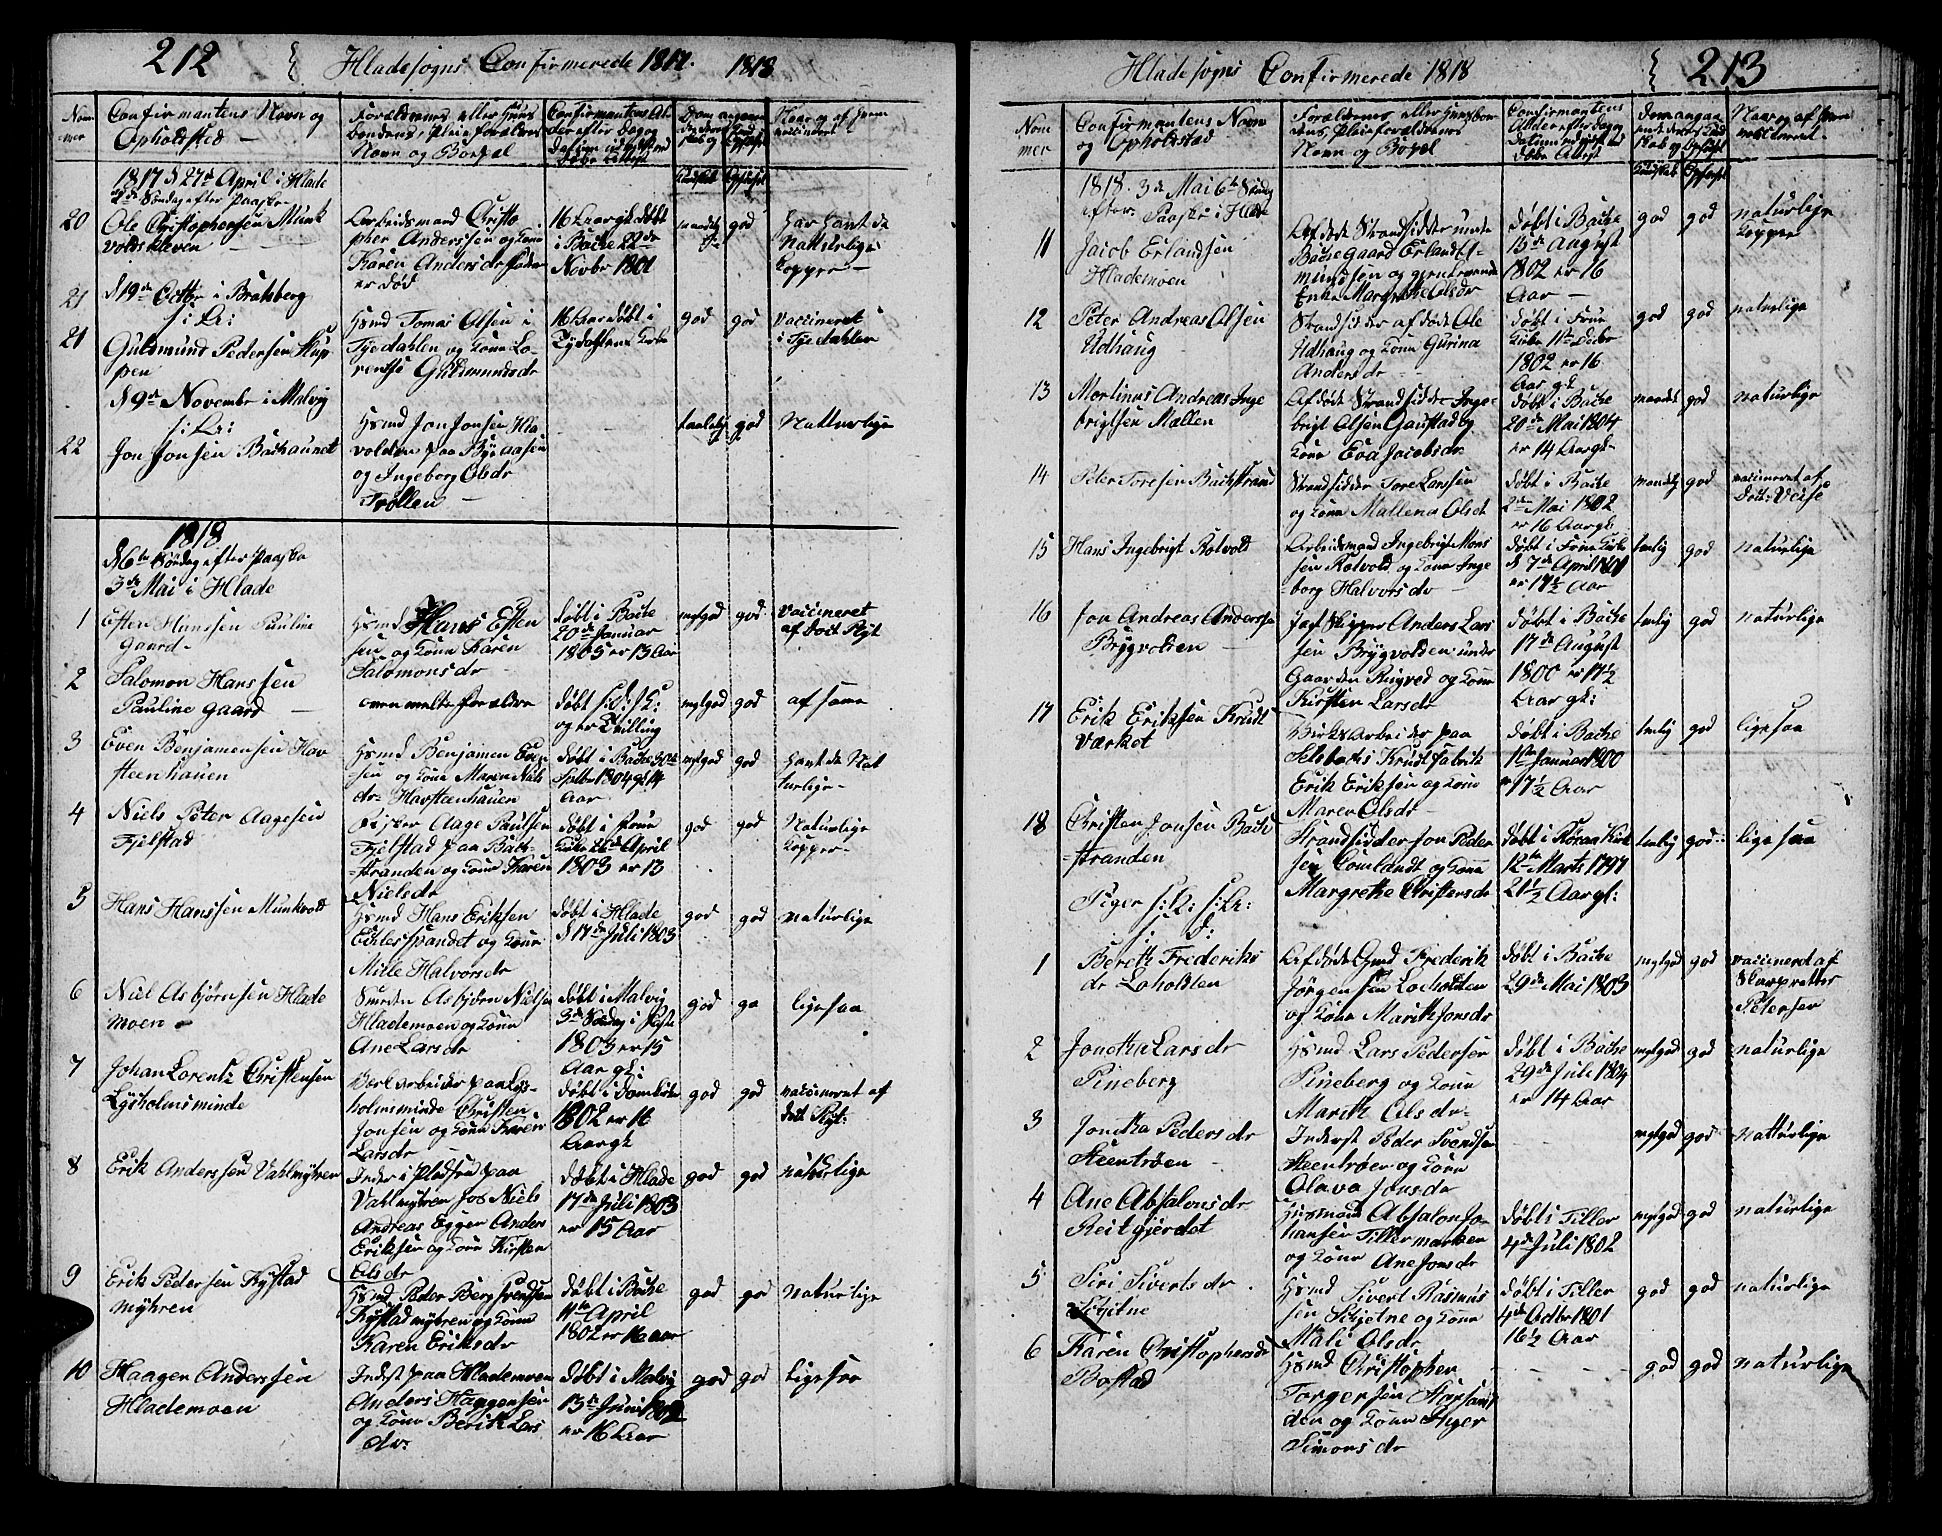 212 Hladesogns Confirmerede 1817. 1818
Nom
mer
Confirmantens Navn og
Opholdsted
Forældrenes eller
Navn og Bopæl
Kundskab Opførsel
1817 d 27de April i Hlade
2de Søndag efter Paaske
20 Ole Christophersen Munk
voldskleven
Arbeidsmand Christo
pher Anderssen og Kone
Karen Andersdr Fader
er død
16 Aar gl døbt
i Bache 22de
Novbr 1801
god
har havt de
Natturlige
Kopper
21 d 19de Octbr i Bratsberg
21 Guldmund Pedersen Stup
pen
Hsmd Tomas Olsen i
Tyedahlen og Kone Lo-
rentse Guldmundsdr
16 Aar døbt i
Tydahlens Kirke
god god
vaccineret
i Tyedahlen
d 9de Novembr i Malvig
22 Jon Jonsen Bachaunet
Hsmd Jon Jonsen Kla
volden paa Byeaasen
og Ingeborg Olsdr
Trollen
taalelig god Natturlige
1818
d 6te Søndag efter Paaske
3de Mai i Hlade
1 Esten Hanssen Pauline
gaard
Hsmd Hans Esten
sen og Kone Karen
Salomonsdr
døbt i Bache
20de Januar
1805 er 13 Aar
mgtgod god
vaccineret
af Doct Rist
2 Salomon Hanssen
Pauline gaard
ovenmeldte Forældre
døbt
og er Tvilling
mgtgod god af samme
3 Even Benjamensen Hav
steenhauen
Hsmd Benjamen Even
sen og Kone Maren Niels
dr Havsteenhauen
døbt i Bache 30te
Septbr 1804 gl 14
Aar
mgtgod god
havt de Nat
turlige
4 Niels Peter Aagesen
Fjelstad
Fisker Aage Paulsen
Fjelstad paa Bach-
stranden og Kone Karen
Nielsdr
døbt i Frue
Kirke April
1803 er 15
god god
Naturlige
Kopper
5 Hans Hanssen Munkvold
Hsmd Hans Eriksen
Echlesspandet og Kone
Mille Halvorsdr
døbt i Hlade
d 17de Juli 1803
god god naturlige
6 Niel Asbjørnsen Hlade
moen
Smeden Asbjørn Nielsen
Hlademoen og Kone
Ane Larsdr
døbt i Malvig
3de Søndag i Faste
1803 er 15
Aar gl:
god ligesaa
7 Johan Lorentz Christensen
Lysholmsminde
arbeider paa Lys-
holmsminde Christen
Jonsen og Kone Karen
Larsdr
døbt i Domkirken
1802 er 16
Aar gl
god god
vaccineret af
Doct Rist:
8 Erik Anderssen Vahlmyhren
Inder i Pladsen paa
Vahlmyhren for Niels
Andreas Egger Anders
Eriksen og Kone Kirsten
Olsdr
døbt i Hlade
17de Juli 1803
er 15 Aar
god god naturlige
9 Erik Pedersen Kystad
myhren
Hsmd Peder Berg Svendsen
Kystadmyhren og Kone
Karen Eriksdr
døbt i Bache
11te April
1802 er 16 Aar
god god naturlige
10 Haagen Anderssen
Hlademoen
Inderst paa Hlademoen
Anders Haagensen
og Kone Berith Lars
dr
døbt i Malvig
13de Juni 1802
er 16 Aar
god god ligesaa
Hladesogns Confirmerede 1818 213
Nom
mer
Confirmantens Navn
og Opholdsted
Navn og Bopæl
Kundskab Opførsel
1818. 3de Mai 6te Søndag
efter Paaske i Hlade
11 Jacob Erlandsen
Hlademoen
Afdøde Strandsidder under
Bachegaard Erland
mundsen og
Enke Margrethe Olsdr
døbt i Bache
15de August
1802 er 16
Aar
god god
naturlige
Kopper
12 Peter Andreas Olsen
Udhaug
Strandsidder afdøde Ole
Udhaug og Kone Gurina
Andersdr
døbt i Frue
Kirke 11te Decbr
1802 er 16
Aar gl
god god naturlige
13 Martinus Andreas Inge
brigtsen Møllen
Afdøde Strandsidder Inge-
brigt Olsen Gaustad og
Kone Eva Jacobsdr
døbt i Bache
20de Mai 1804
er 14 Aar gl
god naturlige
14 Peter Toresen Bachstrand
Strandsidder Tore Larssen
og Kone Mallena Olsdr
døbt i Bache
2de Mai 1802
er 16 Aar gl
god
vaccineret af
Doct: Weise
15 Hans Ingebrigt Rotvold
Arbeidsmand Ingebrigt Mons
sen Rotvold og Kone Inge
borg Halvorsdr
døbt i Frue Kirke
d 7de April 1801
er 17½ Aar
temlig god naturlige
16 Jon Andreas Anderssen
Brygvolden
Jagtskipper Anders Lars
sen Brygvolden under
Gaarden Ringved og Kone
Kirsten Larsdr
døbt i Bache
17de August
1800 er 17½
Aar gl:
temlig god naturlige
17 Erik Eriksen Krudt
Værket
Hirks Arbeider paa
Selsbachs Krudtfabrik
Erik Eriksen og Kone
Maren Olsdr
døbt i Bache
1te Januar 1800
17½ Aar
temlig god ligesaa
18 Christen Jonsen Bach
stranden
Strandsidder Jon Peder
sen Comlandt og Kone
Margrethe Christensdr
døbt i Røraas Kirke
12te Marts 1797
21½ Aar gl:
temlig god ligesaa
Piger
1 Bereth Frederiks
dr Loholten
Afdøde Hsmd Frederik
Jørgensen Loeholten
og Kone Marith Jonsdr
døbt i Bache
29de Mai 1803
mgtgod god
vaccineret af
Skarpretter
Petersen
2 Joneta Larsdr
Pineberg
Hsmd Lars Pedersen
Pineberg og Kone
Marith Olsdr
døbt i Bache
29de Juli 1804
er 14 Aar
mgtgod god naturlige
3 Jonetta Pedersdr
Steentrøen
Inderst Peder Svendsen
Steentrøen og Kone
Olava Jonsdr
mgtgod god natturlige
4 Ane Absalonsdr
Reitgjerdet
Husmand Absalon Jo-
hansen Tillermarken
og Kone Ane Jonsdr
døbt i Tiller
4de Juli 1802
mgtgod god naturlige
5 Siri Sivertsdr
Skjetne
Hsmd Sivert Rasmus
sen Skjetne og Kone
Mali Olsdr
døbt i Tiller
4de Octbr 1801
16½ Aar
god god naturlige
6 Karen Christophersdr
Bostad
Hsmd Christopher
Torgersen
den og Kone
Simonsdr
god god naturlige